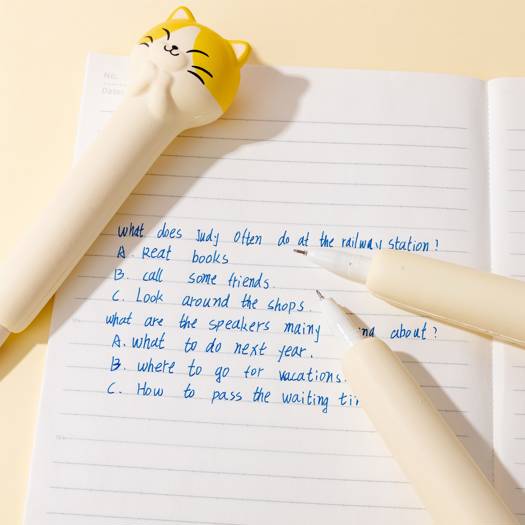 No.
Date:
what does Judy often do at the railway station?
A. Reat books
B. call some friends
C. Look around the shops.
what are the speakers mainy about?
A. what to do next year.
B. where to go for vacations.
C. How to pass the waiting